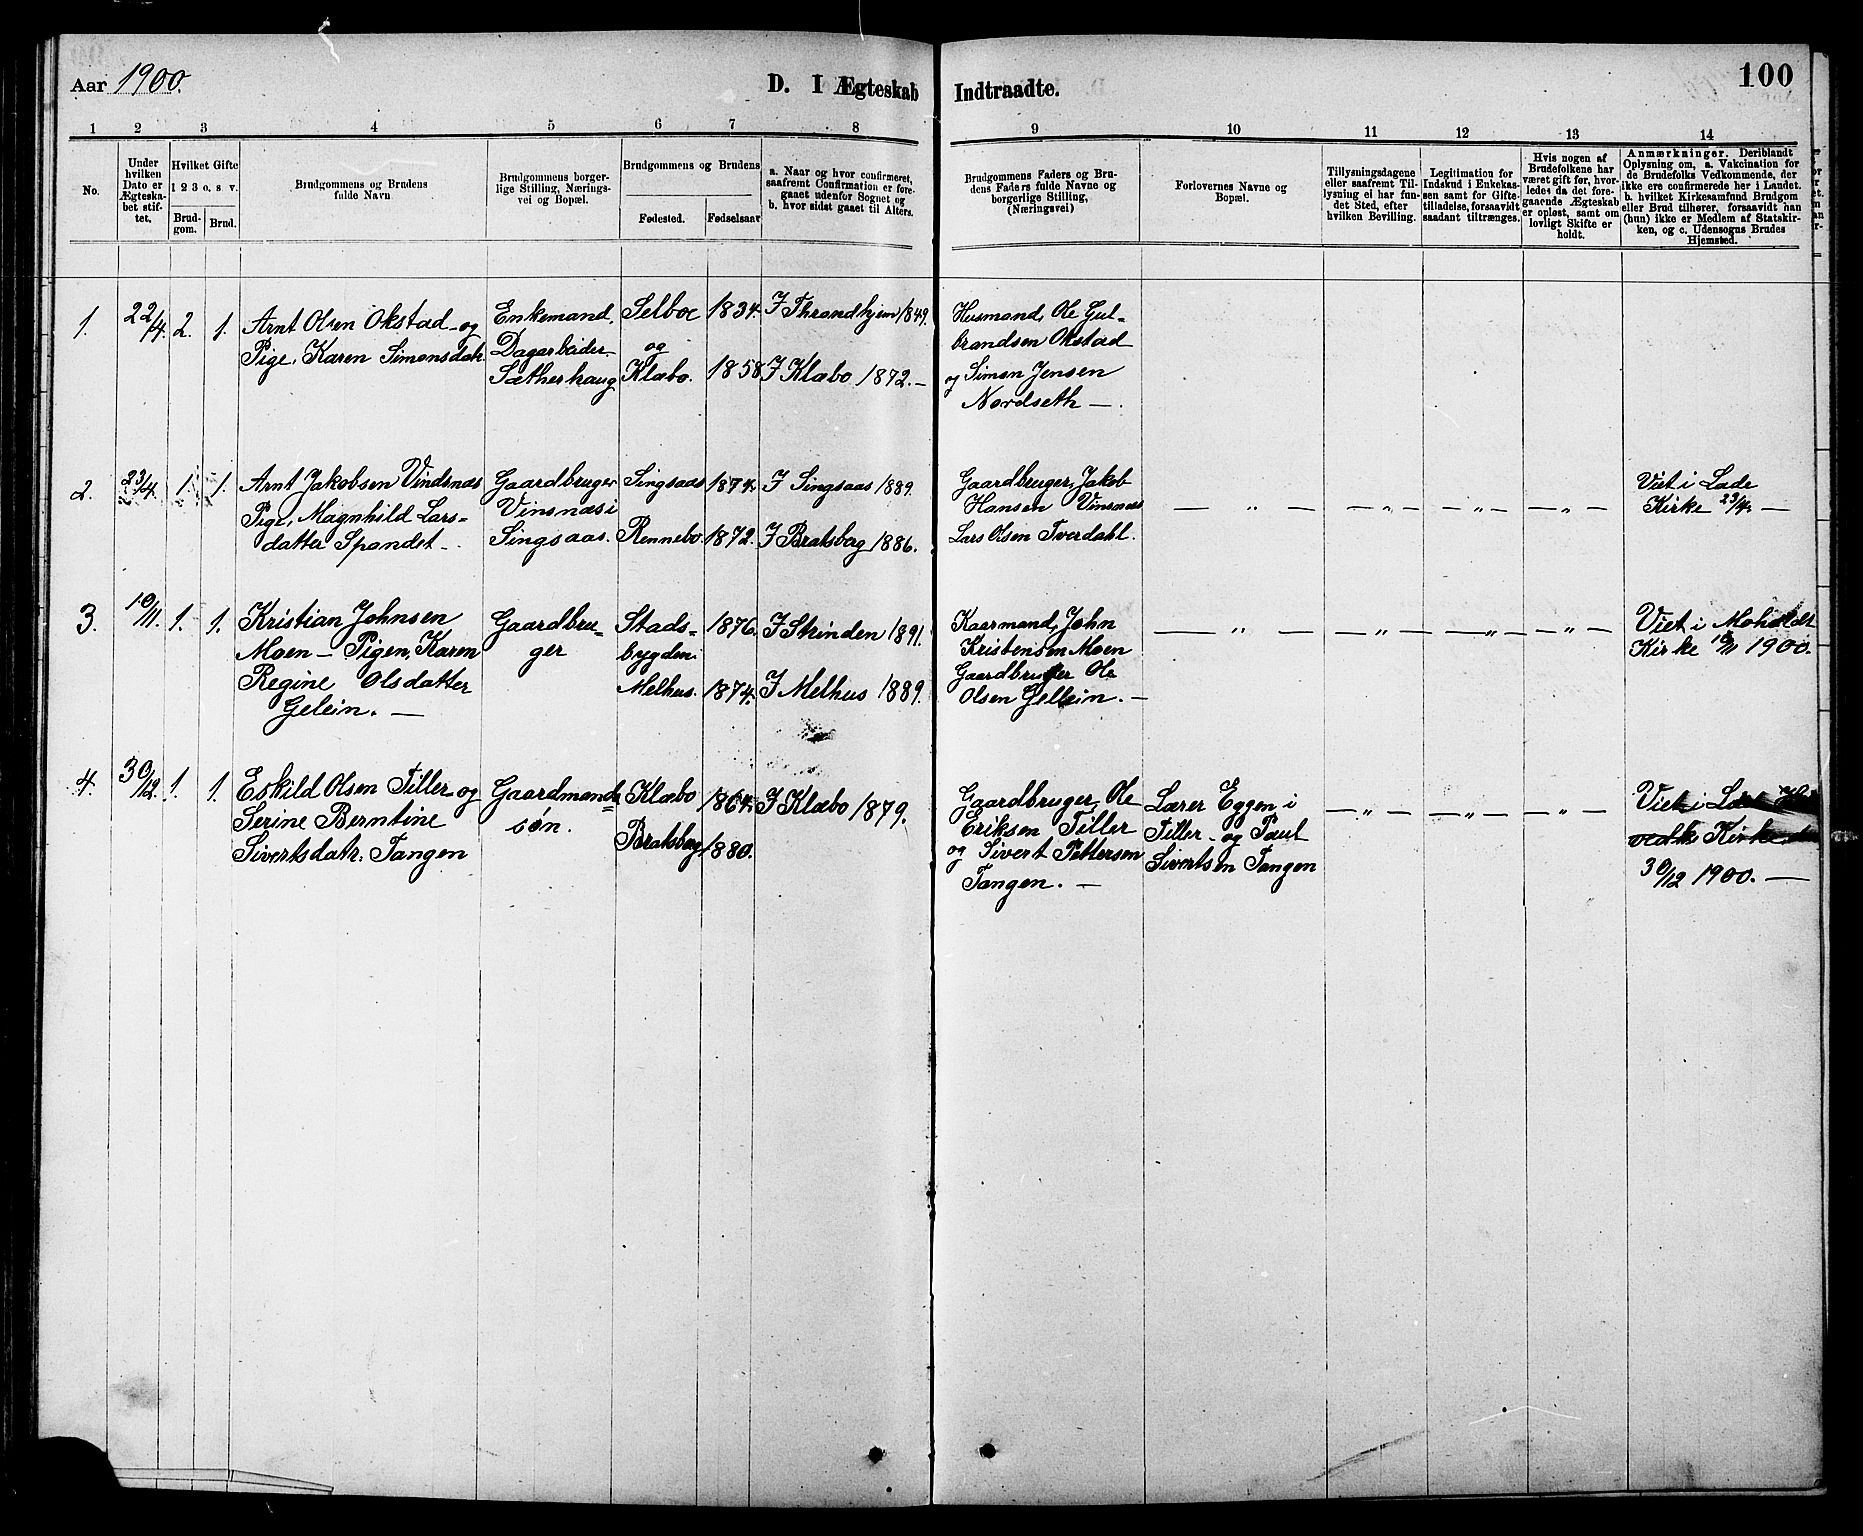 Aar 1900.
D. I Ægteskab Indtraadte.
100
1 2 3 4 5 6 7 8 9 10 11 12 13 14
No.
Under
hvilken
Dato er
Ægteska-
bet stif-
tet.
Hvilket Gifte
1 2 3 o. s. v.
Brud-
gom.
Brud.
Brudgommens og Brudens
fulde Navn
Brudgommens borger-
lige Stilling, Nærings-
vei og Bopæl.
Brudgommens og Brudens
Fødested.
Fødselsaar
a. Naar og hvor confirmeret,
saafremt Confirmation er fore-
gaaet udenfor Sognet og
b. hvor sidst gaaet til Alters.
Brudgommens Faders og Bru-
dens Faders fulde Navne og
borgerlige Stilling,
(Næringsvei)
Forlovernes Navne og
Bopæl.
Tillysningsdagene
eller saafremt Til-
lysning ei har fun-
det Sted, efter
hvilken Bevilling.
Legitimation for
Indskud i Enkekas-
sen samt for Gifte-
tilladelse, forsaavidt
saadant tiltrænges.
Hvis nogen af
Brudefolkene har
været gift før, hvor-
ledes da det fore-
gaaende Ægteskab
er opløst, samt om
lovligt Skifte er
holdt.
Anmærkninger. Deriblandt
Oplysning om, a. Vakcination for
de Brudefolks Vedkommende, der
ikke ere confirmerede her i Landet.
b. hvilket Kirkesamfund Brudgom
eller Brud tilhører, forsaavidt han
(hun) ikke er Medlem af Statskir-
ken, og c. Udensogns Brudes
Hjemsted.
1. 22/4. 2. 1.
Arnt Olsen Okstad - og
Pige, Karen Simonsdatr.
Enkemand,
Dagarbeider
Sætherhaug
Selboe
og
Klæbo.
1834.
1858
I Throndhjem 1849.
I Klæbo 1872. -
Husmand, Ole Gul-
brandsen Okstad
og Simon Jensen
Nordseth - .
2. 23/4. 1. 1.
Arnt Jakobsen Vindsnæs
Pige, Magnhild Lars-
datter Spandet -
Gaardbruger
Vinsnæs i
Singsaas.
Singsaas
Rennebo.
1874.
1872.
I Singsaas 1889.
I Bratsberg 1886.
Gaardbruger, Jakob
Hansen Vinsnæs
Lars Olsen Tverdahl.
— „ — — „ — — „ — — „ —
Viet i Lade
Kirke 23/4. —
3. 10/11. 1. 1.
Kristian Johnsen
Moen - Pigen, Karen
Regine Olsdatter
Gelein. —
Gaardbru-
ger
Stads-
bygden
Melhus.
1876.
1874.
I Strinden 1891.
I Melhus 1889.
Kaarmand, John
Kristensen Moen
Gaardbruger Ole
Olsen Gellein. —
— „ — — „ — — „ — — „ —
Viet i Moholdt
Kirke 10/11 1900.
4. 30/12. 1. 1.
Eskild Olsen Tiller og
Serine Berntine
Sivertsdatr. Tangen
Gaardmands
søn.
Klæbo
Bratsberg
1864.
1880.
I Klæbo 1879.
Gaardbruger, Ole
Eriksen Tiller
og Sivert Pettersen
Tangen. —
Lærer Eggen i
Tiller - og Paul
Sivertsen Tangen
— „ — — „ — — „ —
Viet i
Kirke
30/12 1900. —